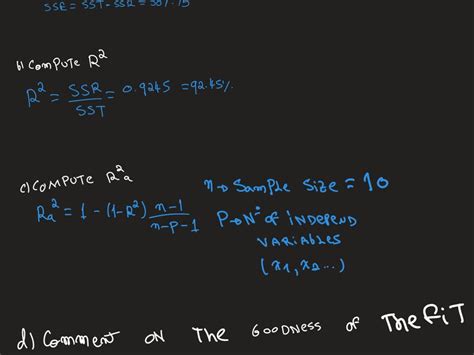 SSE = SST - SSR = 507.75
b) Compute R²
R² = SSR/SST = 0.9245 = 92.45%
c) COMPUTE R²a
n → Sample Size = 10
Ra² = 1 - (1-R²) n-1/n-p-1
P → N° of INDEPEND
VARIABLES
(x1, x2 ...)
d) Comment ON THE GOODNESS of The FiT